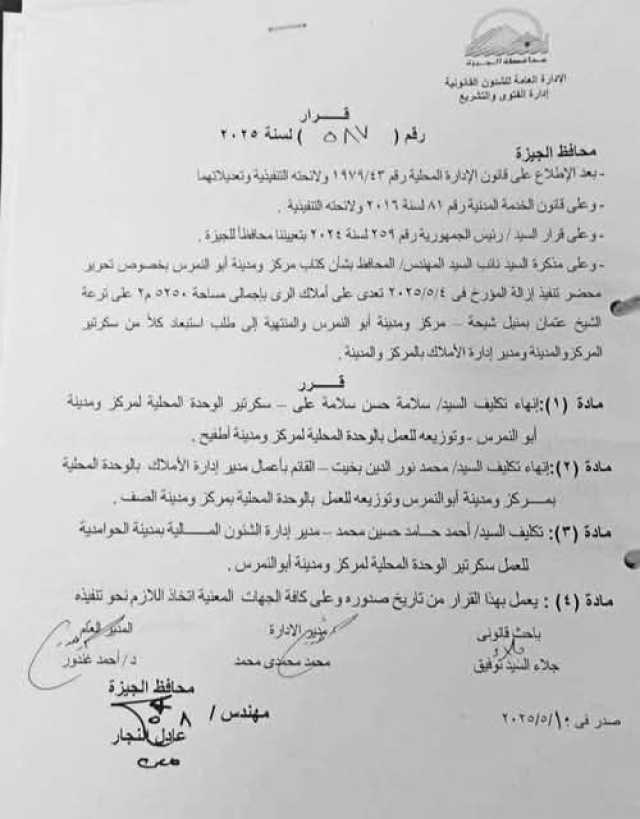 محافظة الجيزة
الادارة العامة للشئون القانونية
إدارة الفتوى والتشريع
قـــــرار
رقم ( ٥٨٧ ) لسنة ٢٠٢٥
محافظ الجيزة
- بعد الإطلاع على قانون الإدارة المحلية رقم ١٩٧٩/٤٣ ولائحته التنفيذية وتعديلاتهما
- وعلى قانون الخدمة المدنية رقم ٨١ لسنة ٢٠١٦ ولائحته التنفيذية .
- وعلى قرار السيد / رئيس الجمهورية رقم ٢٥٩ لسنة ٢٠٢٤ بتعييننا محافظاً للجيزة .
- وعلى مذكرة السيد نائب السيد المهندس/ المحافظ بشأن كتاب مركز ومدينة أبو النمرس بخصوص تحرير
محضر تنفيذ إزالة المؤرخ فى ٢٠٢٥/٥/٤ تعدى على أملاك الرى بإجمالى مساحة ٥٢٥٠ م٢ على ترعة
الشيخ عثمان بمنيل شيحة – مركز ومدينة أبو النمرس والمنتهية إلى طلب استبعاد كلاً من سكرتير
المركز والمدينة ومدير إدارة الأملاك بالمركز والمدينة .
قــــرر
مادة (١):إنهاء تكليف السيد/ سلامة حسن سلامة على – سكرتير الوحدة المحلية لمركز ومدينة
أبو النمرس - وتوزيعه للعمل بالوحدة المحلية لمركز ومدينة أطفيح .
مادة (٢):إنهاء تكليف السيد/ محمد نور الدين بخيت – القائم بأعمال مدير إدارة الأملاك بالوحدة المحلية
بمـــركز ومدينة أبوالنمرس وتوزيعه للعمل بالوحدة المحلية بمركز ومدينة الصف .
مادة (٣): تكليف السيد/ أحمد حـامد حسين محمد – مدير إدارة الشئون المـــالية بمدينة الحوامدية
للعمل سكرتير الوحدة المحلية لمركز ومدينة أبوالنمرس .
مادة (٤) : يعمل بهذا القرار من تاريخ صدوره وعلى كافة الجهات المعنية اتخاذ اللازم نحو تنفيذه
باحث قانونى مدير الادارة المدير العام
جلاء السيد توفيق محمد محمدى محمد د/ أحمد غندور
محافظ الجيزة
مهندس /
عادل النجار
صدر فى ٢٠٢٥/٥/١٠